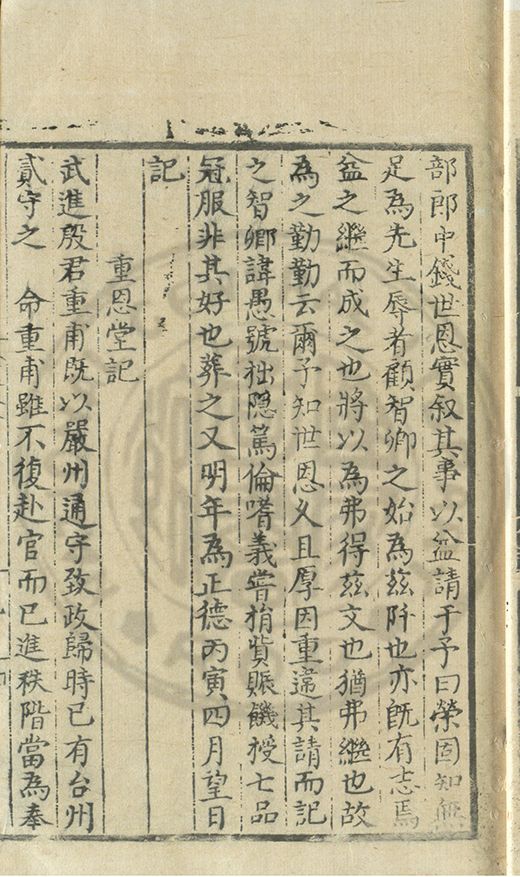 部郎中錢世恩實叙其事以盆請于予曰榮固知無
足為先生辱者顧智卿之始為兹阡也亦既有志焉
盆之繼而成之也將以為弗得兹文也猶弗繼也故
為之勤勤云爾予知世恩义且厚因重違其請而記
之智卿諱愚號拙隠篤倫嗜義嘗捐貲賑饑授七品
冠服非其好也葬之又明年為正德丙寅四月望日
記
重恩堂記
武進殷君重甫既以嚴州通守致政歸時已有台州
貳守之 命重甫雖不復赴官而已進秩階當為奉